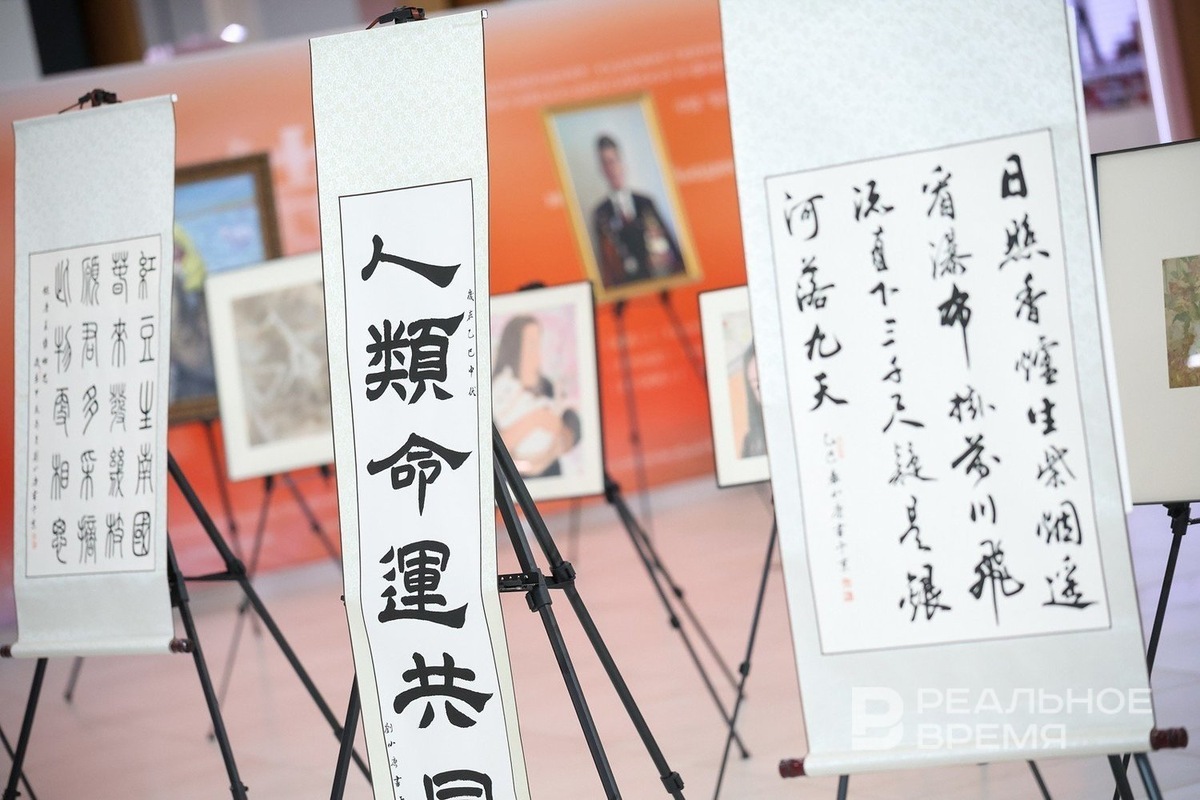 紅豆生南國
春來發幾枝
願君多采摘
此物最相思
人類命運共同
歲在乙巳
日照香爐生紫烟遥
看瀑布掛前川飛
流直下三千尺疑是銀
河落九天
乙巳
В РЕАЛЬНОЕ
ВРЕМЯ